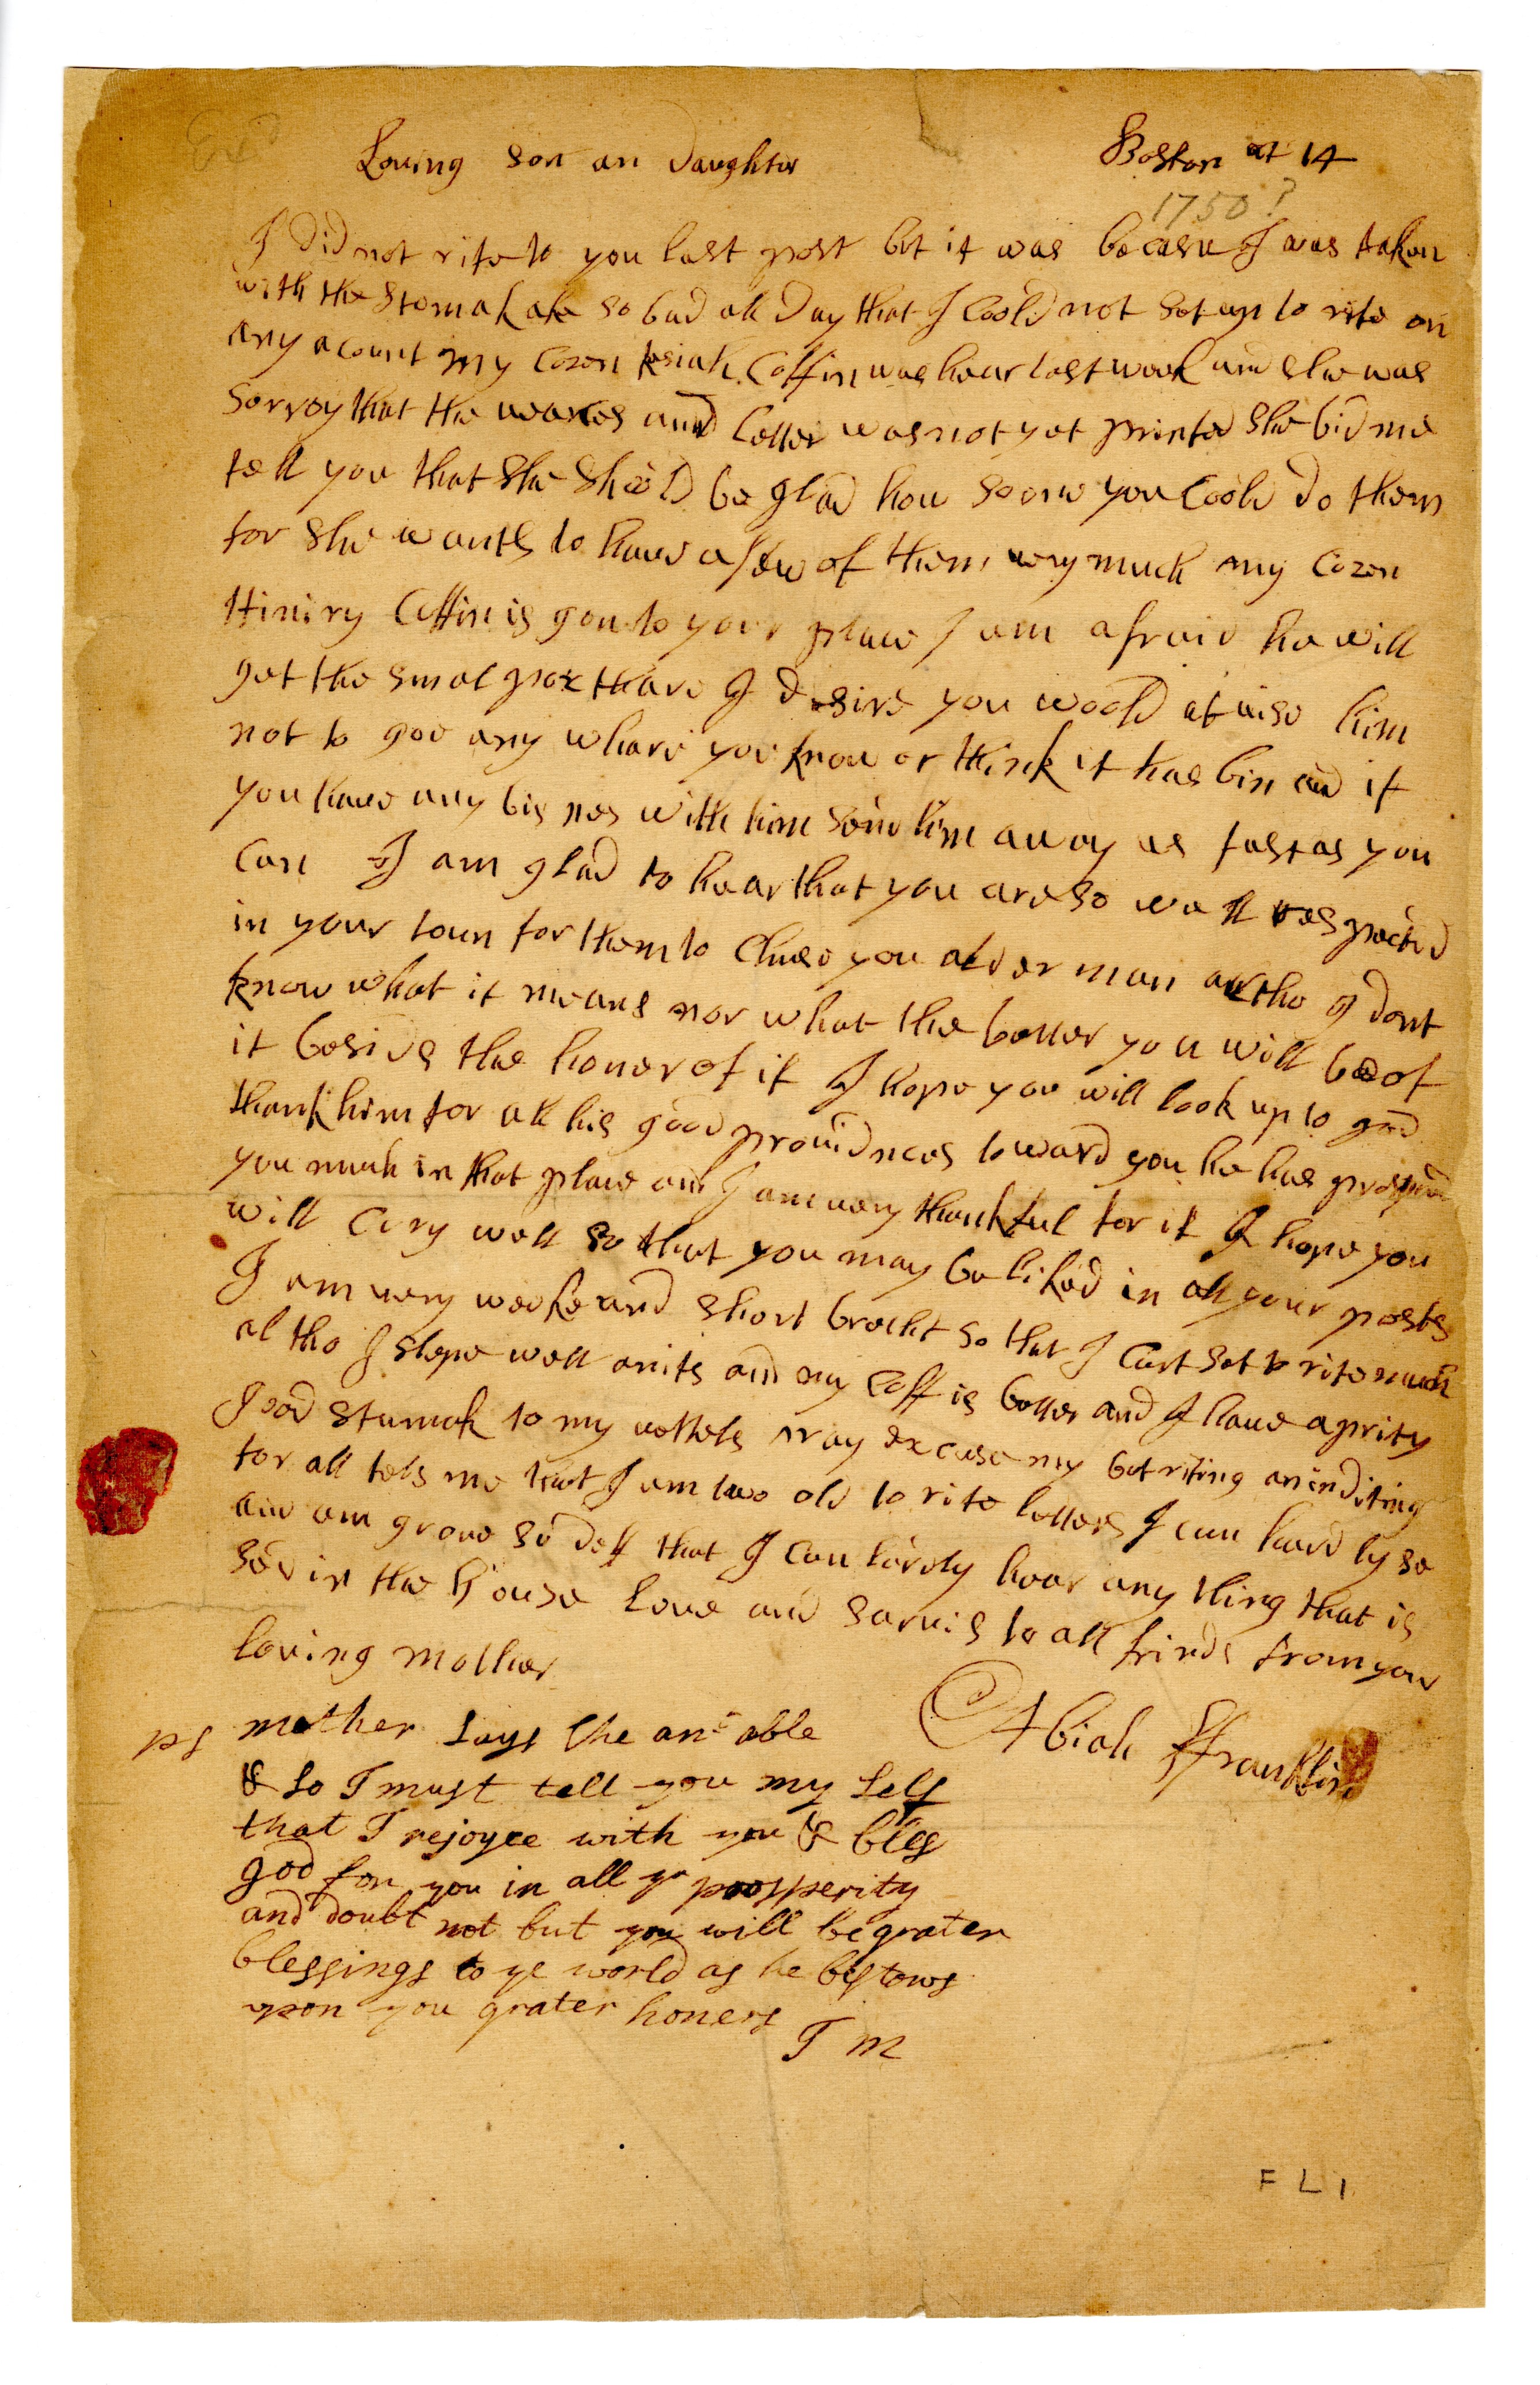 Loving son an Daughter
Boston ot 14
1750?
I Did not rite to you last post bot it was becasue I was taken
with the stomak ake so bad all Day that I Coold not set up to rite on
any acount my Cozen kesiah Coffin was hear last week and she was
sorrey that the warses and Letter was not yet printed she bid me
tell you that she shoold be glad hou soone you Coold do them
for she wants to have a few of them very much my Cozen
Hiniry Coffin is gon to your place I am afraid he will
get the smal pox thare I desire you woold atvise him
not to goe any whare you know or think it has bin and if
you have any bisnes with him send him away as fast as you
Can I am glad to hear that you are so well respected
in your toun for them to Chuse you alder man altho I dont
know what it means nor what the better you will be of
it beside the honer of it I hope you will look up to god
thank him for all his good providnces toward you he has prospred
you much in that place and I am very thankful for it I hope you
will Cary well so that you may be liked in all your posts
I am very weeke and short bracht so that I Cant set to rite much
al tho I slepe well anits and my Coff is better and I have a prity
good stumak to my vettels pray excuse my bot riting an inditing
for all tels me that I am two old to rite letters I can hardly se
and am grone so def that I can hardly hear any thing that is
sed in the house Love and sarvis to all frinds from your
loving mother
Abiah ffranklin
ps mother says she ant able
& so I must tell you my self
that I rejoyce with you & bles
god for you in all yr prosperity
and doubt not but you will be grater
blessings to ye world as he bestows
upon you grater honers
J M
F L I